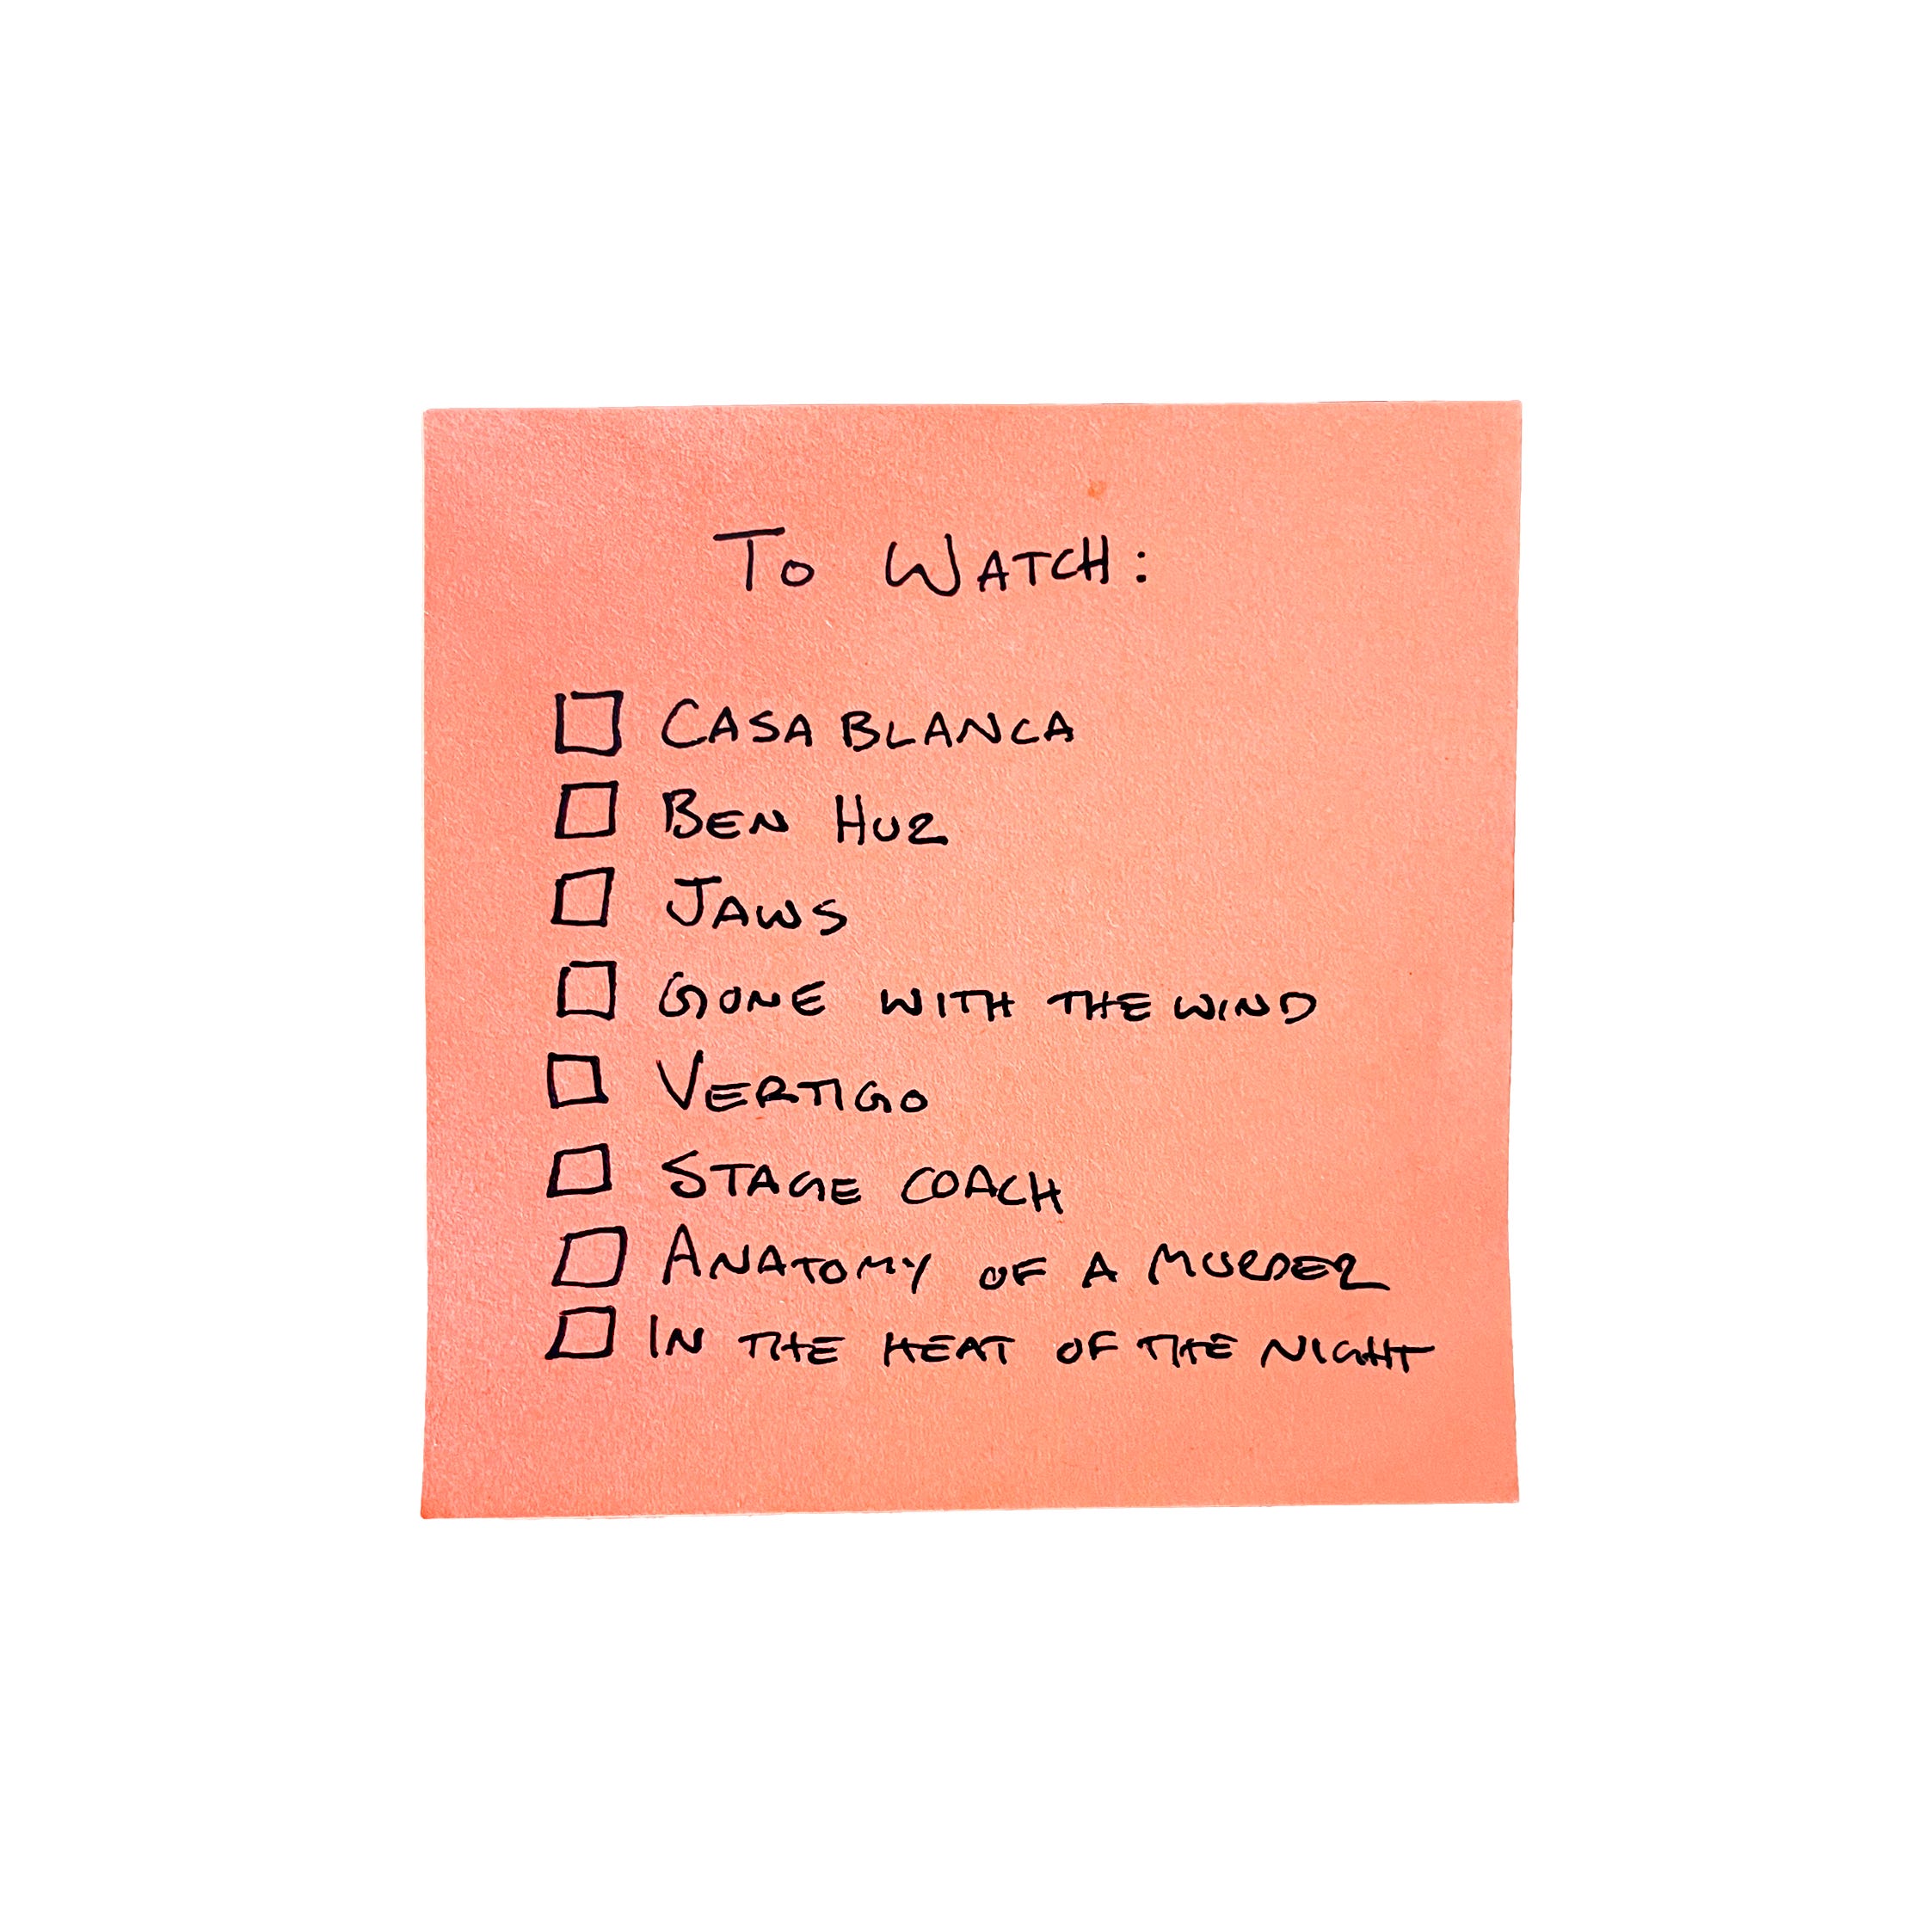 To WATCH:
CASABLANCA
BEN HUR
JAWS
GONE WITH THE WIND
VERTIGO
STAGE COACH
ANATOMY OF A MURDER
IN THE HEAT OF THE NIGHT